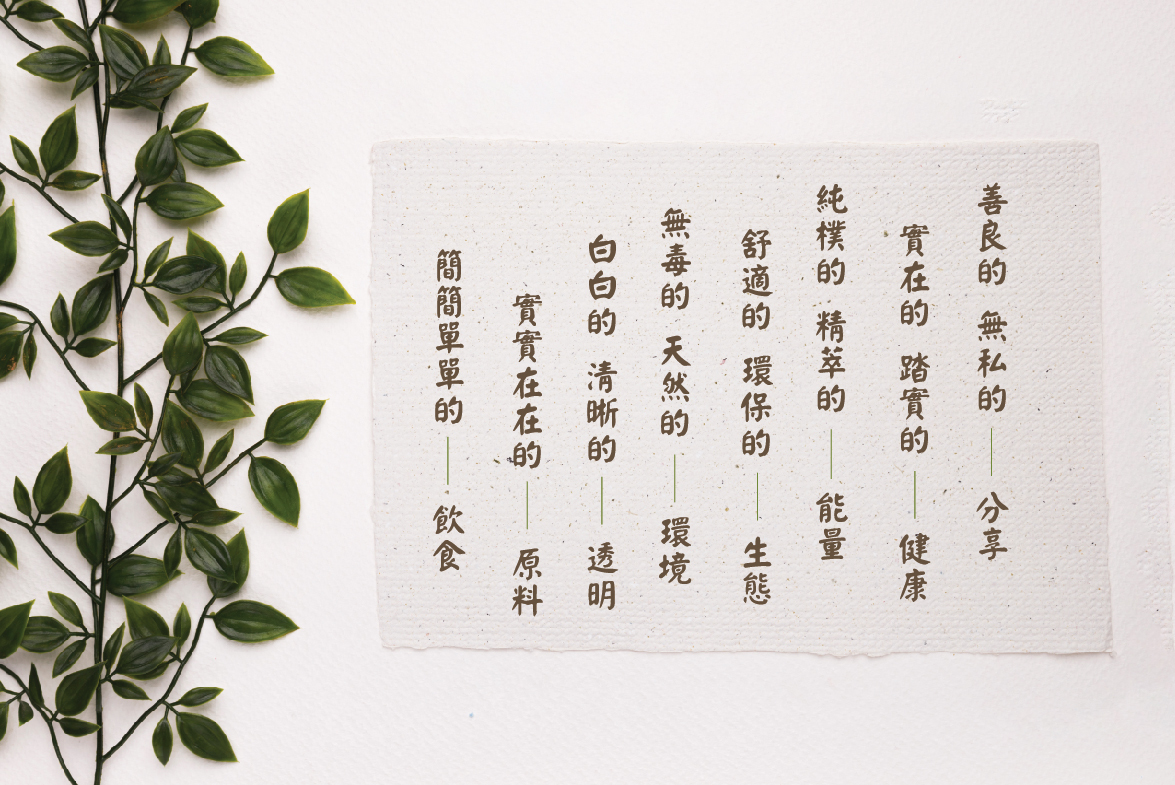 善良的 無私的 | 分享
實在的 踏實的 | 健康
純樸的 精萃的 | 能量
舒適的 環保的 | 生態
無毒的 天然的 | 環境
白白的 清晰的 | 透明
實實在在的 | 原料
簡簡單單的 | 飲食